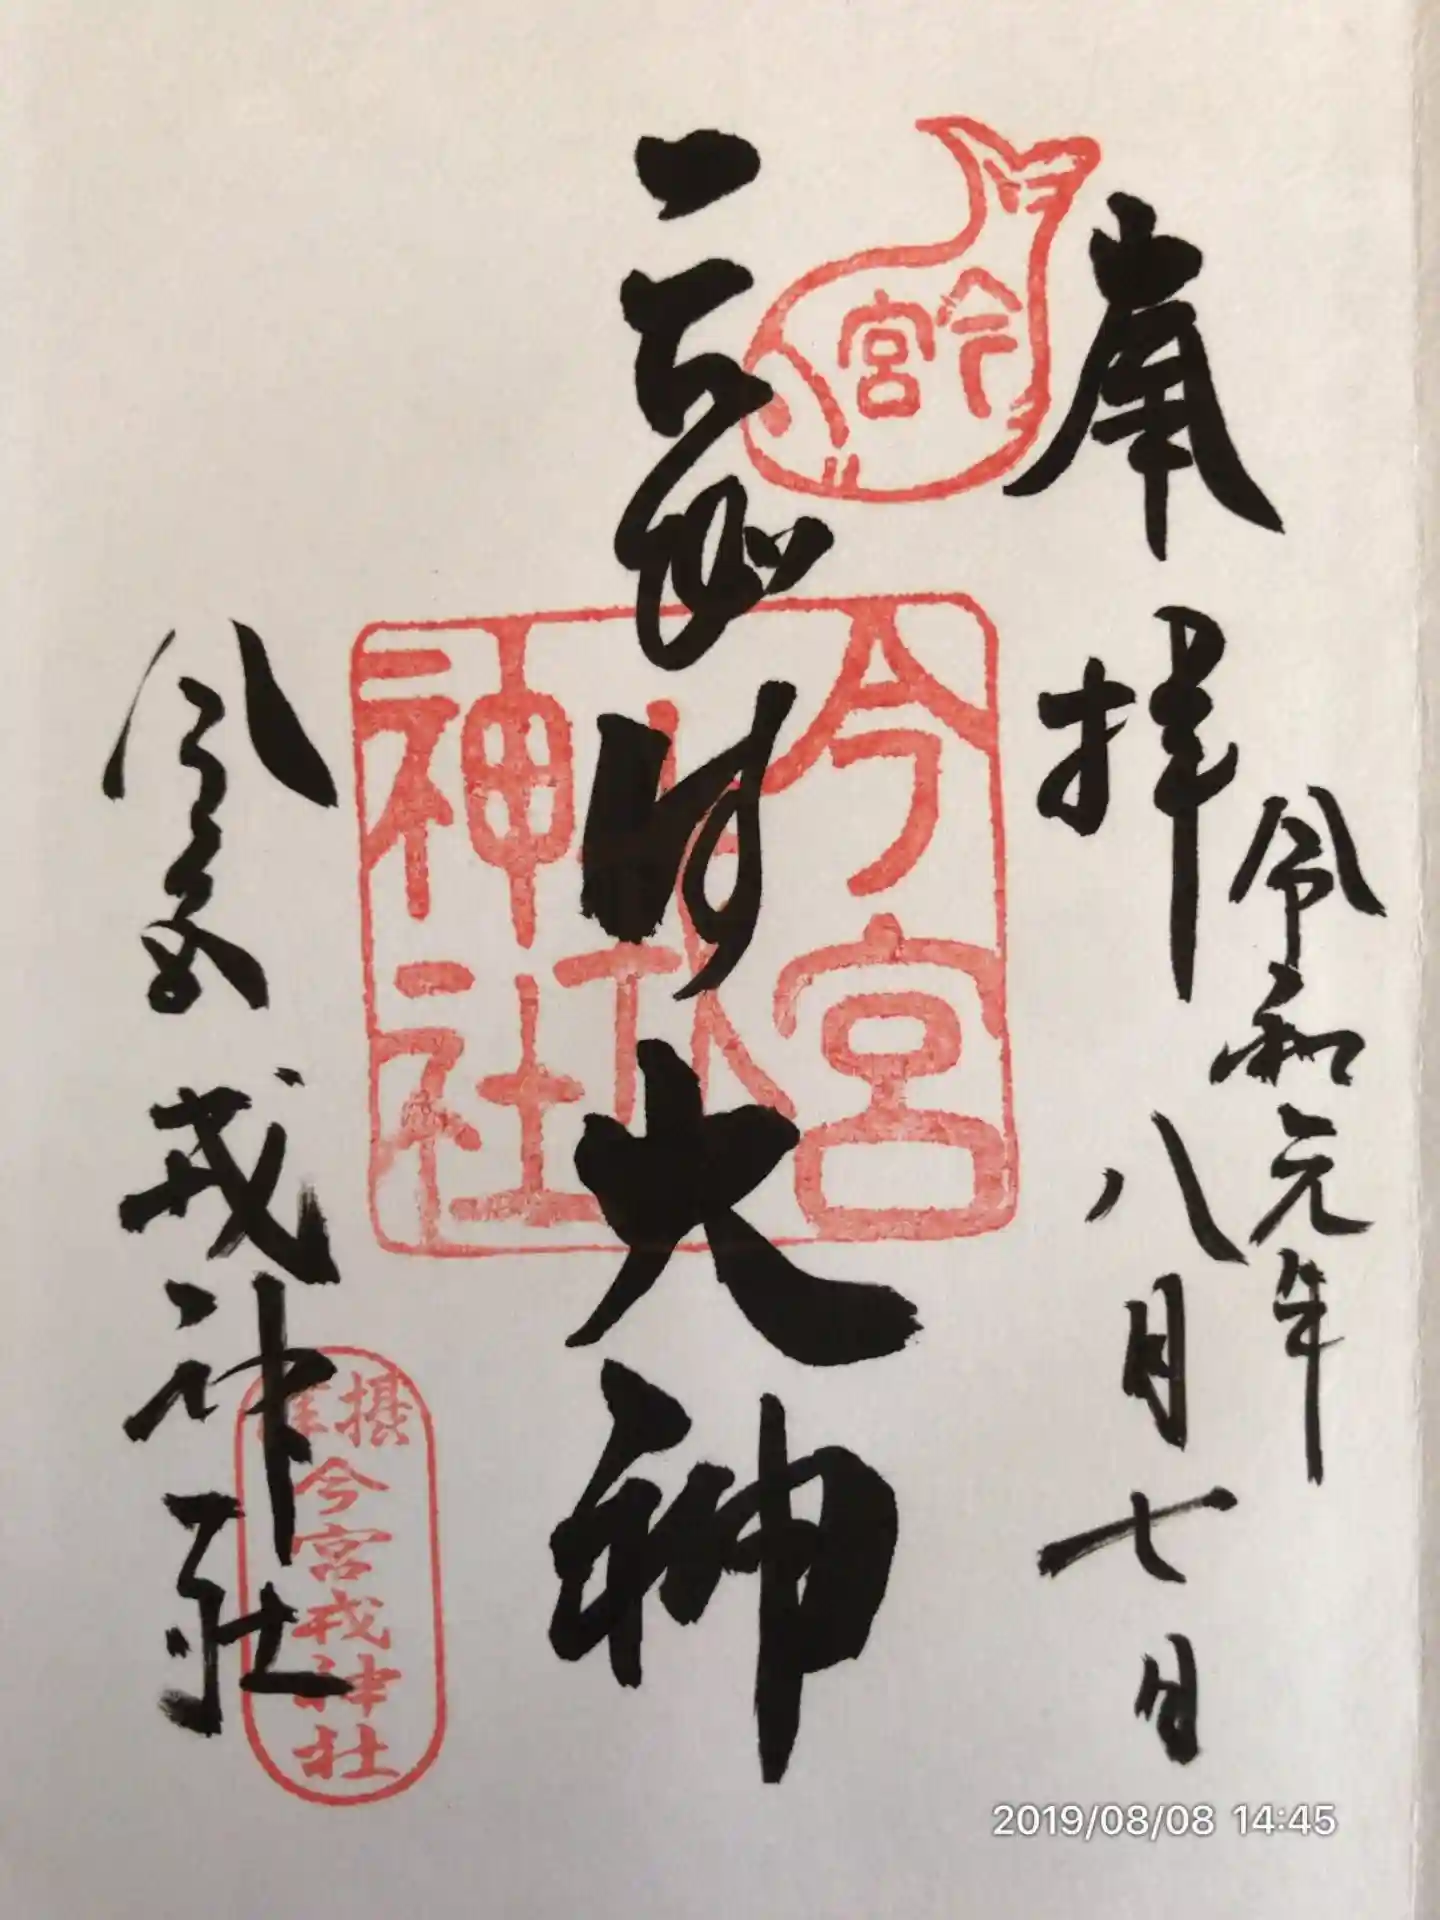 奉拝
令和元年
八月七日
大神
今宮戎神社
今宮
今宮戎神社
摂津
今宮戎神社
2019/08/08 14:45